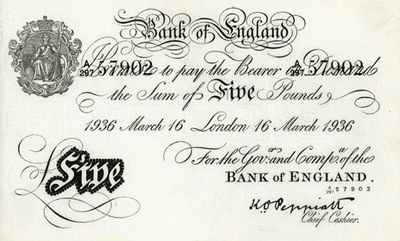 Bank of England
A/297 57902 A/297 57902
I Promise to pay the Bearer on Demand
the Sum of Five Pounds
1936 March 16 London 16 March 1936
For the Gov.r and Comp.a of the
BANK OF ENGLAND.
A/297 57902
£Five
K.O. Peppiatt
Chief Cashier.